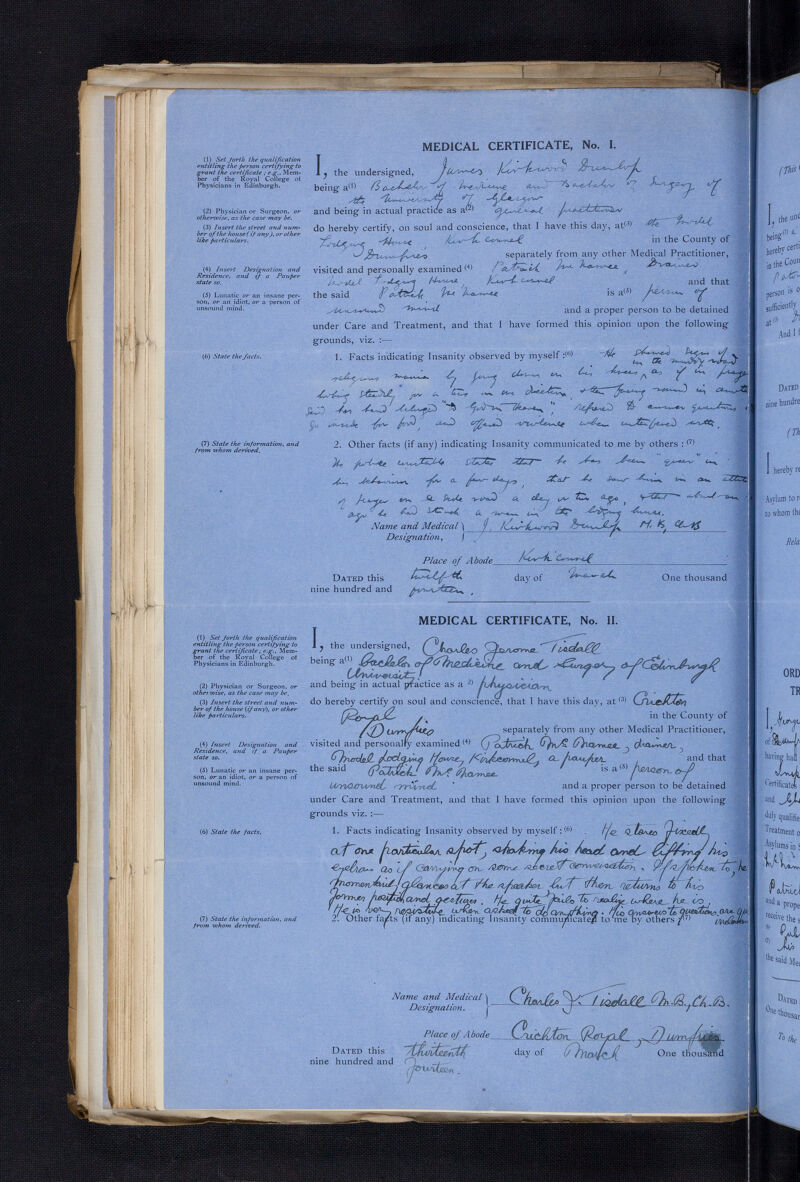 MEDICAL CERTIFICATE, No. I.
(1) Set forth the qualification
entitling the person certifying to
grant the certificate; e.g., Mem-
ber of the Royal College of
Physicians in Edinburgh.
I, the undersigned, James Kirkwood Dunlop
being a(1) Bachelor of Medicine and Bachelor of Surgery of
the University of Glasgow
(2) Physician or Surgeon, or
otherwise, as the case may be.
and being in actual practice as a(2) general practitioner
(3) Insert the street and num-
ber of the house (if any), or other
like particulars.
do hereby certify, on soul and conscience, that I have this day, at(3) the Model
Lodging House, Kirkconnel in the County of
Dumfries separately from any other Medical Practitioner,
(4) Insert Designation and
Residence, and if a Pauper
state so.
visited and personally examined (4) Patrick McNamee, Drainer
Model Lodging House Kirkconnel and that
(5) Lunatic or an insane per-
son, or an idiot, or a person of
unsound mind.
the said Patrick McNamee is a(5) person of
unsound mind and a proper person to be detained
under Care and Treatment, and that I have formed this opinion upon the following
grounds, viz. :—
(6) State the facts.
1. Facts indicating Insanity observed by myself :(6) He showed signs of
religious mania by going down on his knees, as if in
in the muddy road
looking steadily for a time in one direction, then
said his hand belonged to God in Heaven", refused to answer questions
go inside for food, and offered violence when interfered with.
(7) State the information, and
from whom derived.
2. Other facts (if any) indicating Insanity communicated to me by others : (7)
The police constable states that he has been "queer" in
his behaviour for a few days, that he saw him in an
of prayer on the side road a day or two ago, that about
ago he had struck a man in the lodging house.
Name and Medical
Designation, J. Kirkwood Dunlop M.B, Ch B
Place of Abode Kirkconnel
Dated this twelfth day of March One thousand
nine hundred and fourteen.
MEDICAL CERTIFICATE, No. II.
(1) Set forth the qualification
entitling the person certifying to
grant the certificate; e.g., Mem-
ber of the Royal College of
Physicians in Edinburgh.
I, the undersigned, Charles Jerome Tisdall
being a(1) Bachelor of Medicine and Surgery of Edinburgh
University
(2) Physician or Surgeon, or
otherwise, as the case may be.
and being in actual practice as a (2) physician
(3) Insert the street and num-
ber of the house (if any), or other
like particulars.
do hereby certify on soul and conscience, that I have this day, at (3) Crichton
Royal in the County of
Dumfries separately from any other Medical Practitioner,
(4) Insert Designation and
Residence, and if a Pauper
state so.
visited and personally examined (4) Patrick McNamee, drainer,
Model Lodging House, Kirkconnel, a pauper and that
(5) Lunatic or an insane per-
son, or an idiot, or a person of
unsound mind.
the said Patrick McNamee is a (5) person of
unsound mind and a proper person to be detained
under Care and Treatment, and that I have formed this opinion upon the following
grounds viz. :—
(6) State the facts.
1. Facts indicating Insanity observed by myself :(6) He stares fixedly
at one particular spot, shaking his head and lifting his
eyebrows as if carrying on some secret conversation. If spoken to, he
momentarily glances at the speaker but then returns to his
former position and gestures. He quite fails to realize where he is.
He is very resistive when asked to do anything. His answers to questions are
(7) State the information, and
from whom derived.
2. Other facts (if any) indicating Insanity communicated to me by others :(7)
Name and Medical
Designation. Charles J. Tisdall M.B., Ch.B.
Place of Abode Crichton Royal, Dumfries
Dated this thirteenth day of March One thousand
nine hundred and fourteen.